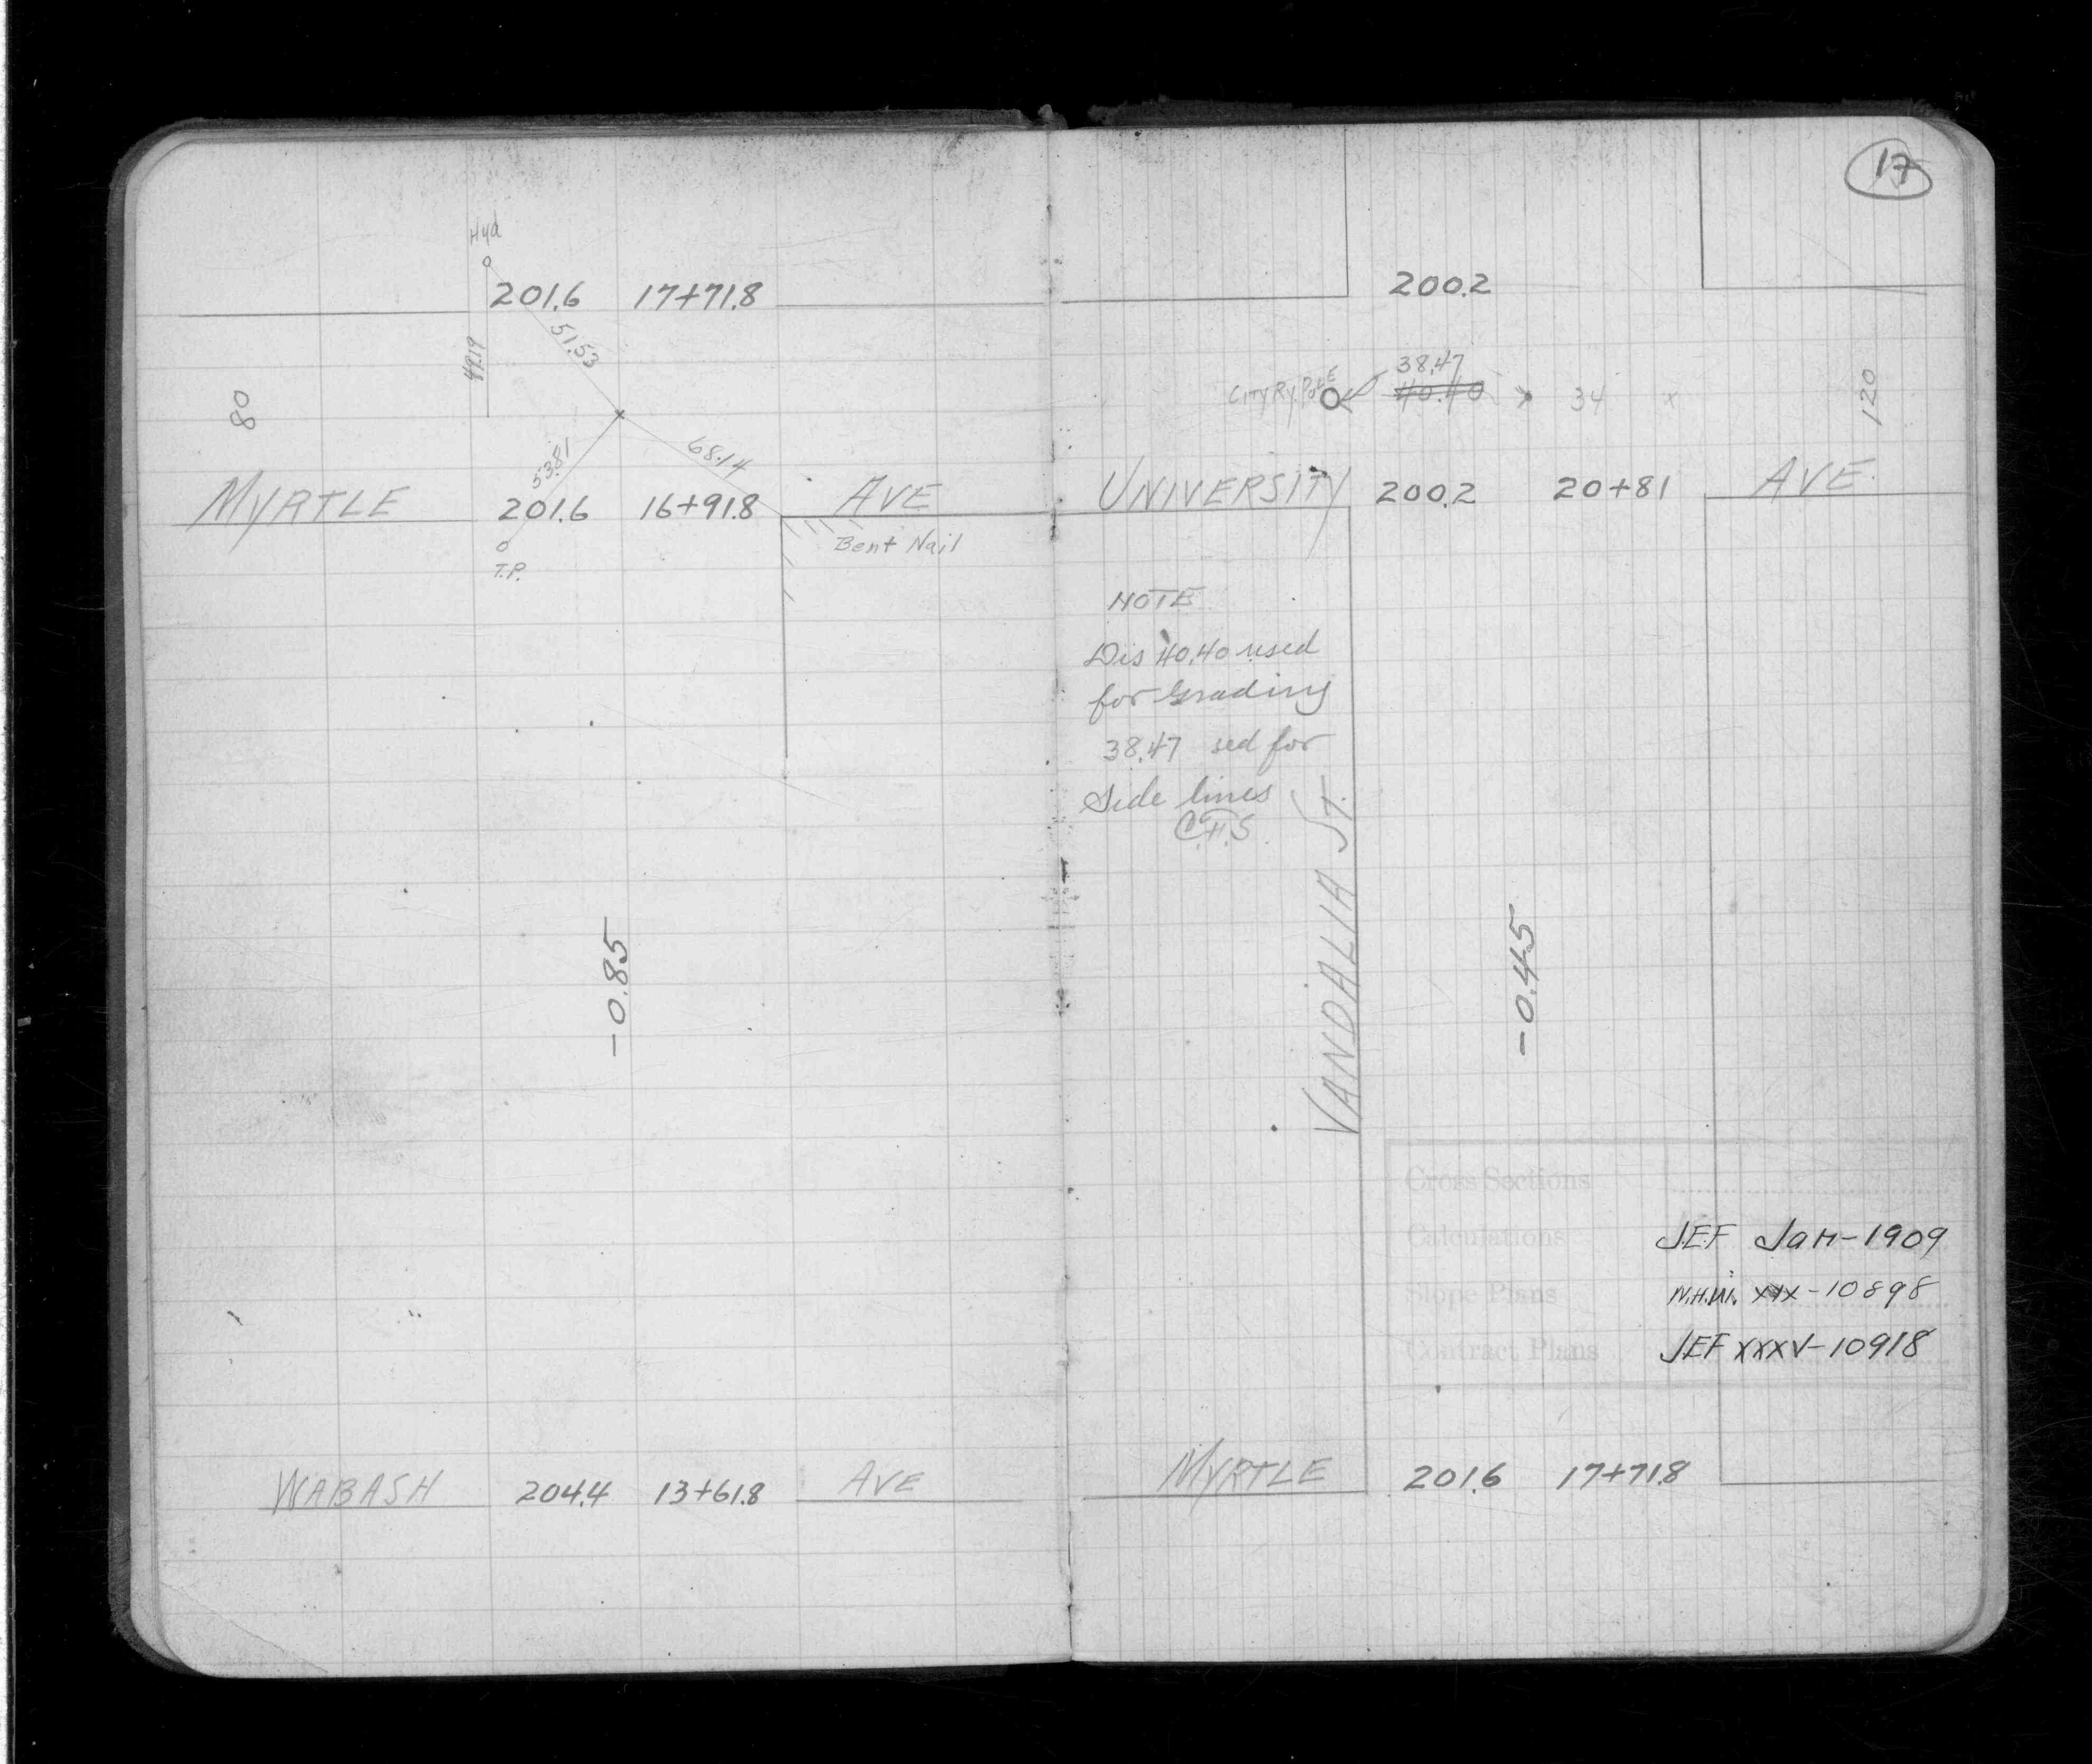 Hyd
201.6 17+71.8
51.53
49.19
80
53.81
68.14
MYRTLE 201.6 16+91.8 AVE
Bent Nail
T.P.
-0.85
WABASH 204.4 13+61.8 AVE
17
200.2
38.47
CITY RY. POLE 40.40 34 x
120
UNIVERSITY 200.2 20+81 AVE.
NOTE
Dis 40.40 used
for Grading
38.47 sed for
Side lines
C.H.S.
VANDALIA ST.
-0.45
Cross Sections
Calculations J.E.F Jan-1909
Slope Plans N.H.W. XIX-10898
Contract Plans JEF XXXV-10918
MYRTLE 201.6 17+71.8